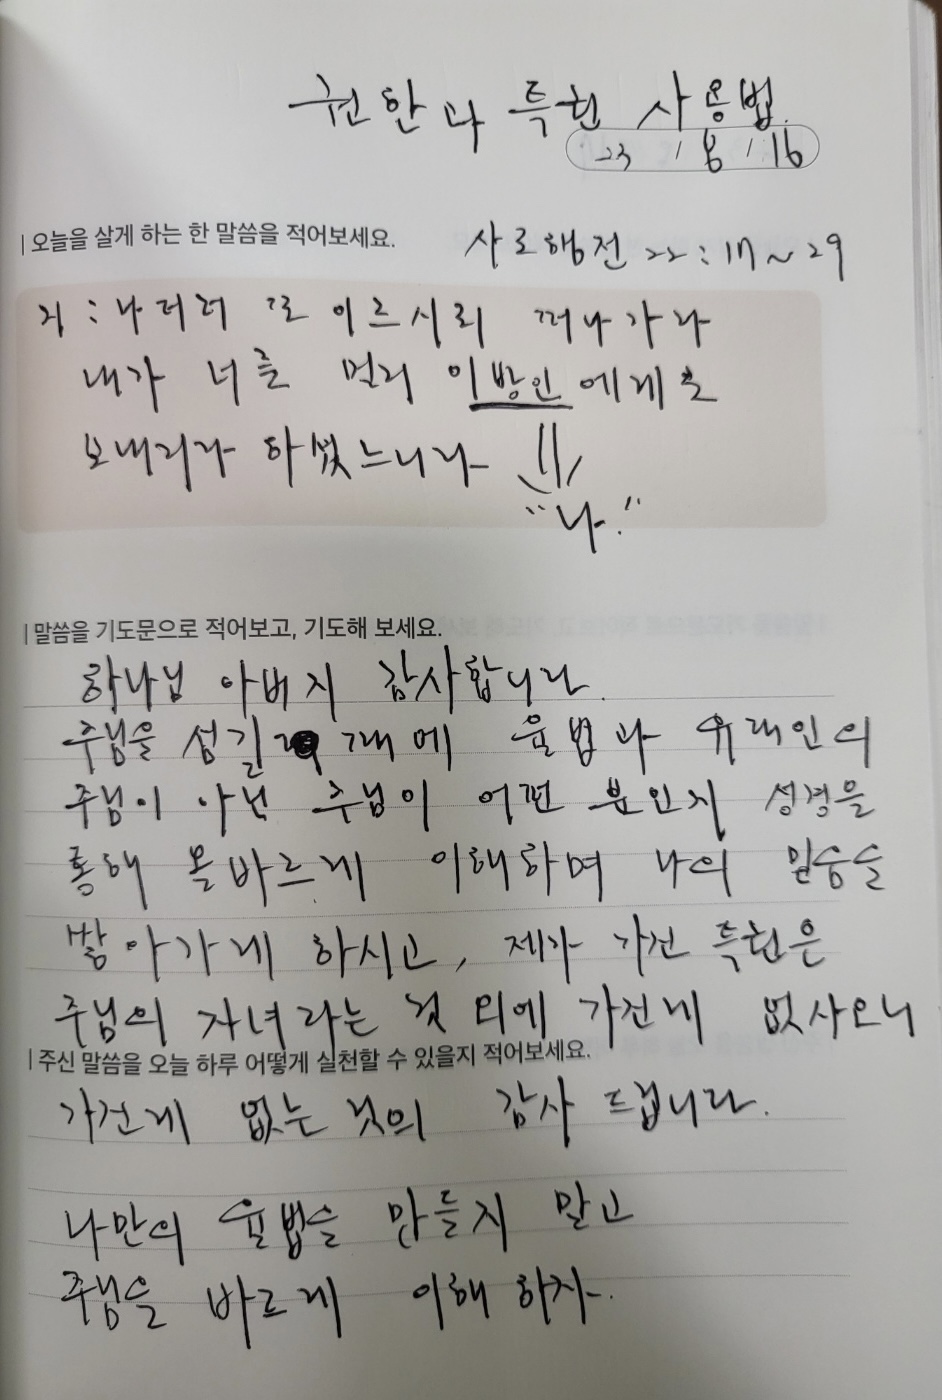 권한과 특권 사용법.
23 / 8 / 16
| 오늘을 살게 하는 한 말씀을 적어보세요.
사도행전 22:17~29
21:나더러 또 이르시되 떠나가라
내가 너를 멀리 이방인에게로
보내리라 하셨느니라
"나."
| 말씀을 기도문으로 적어보고, 기도해 보세요.
하나님 아버지 감사합니다.
주님을 섬길 때에 율법과 유대인의
주님이 아닌 주님이 어떤 분인지 성경을
통해 올바르게 이해하며 나의 믿음을
쌓아가게 하시고, 제가 가진 특권은
주님의 자녀라는 것 외에 가진게 없사오니
| 주신 말씀을 오늘 하루 어떻게 실천할 수 있을지 적어보세요.
가진게 없는 것의 감사 드립니다.
나만의 율법을 만들지 말고
주님을 바르게 이해 하자.